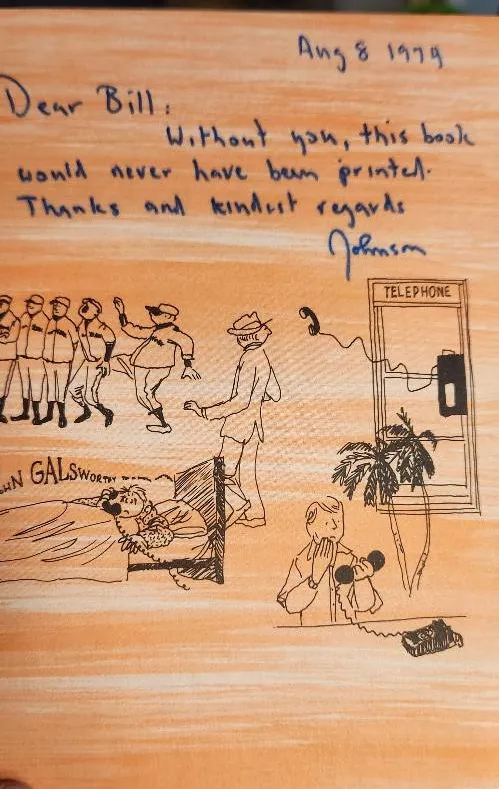 Aug 8 1979
Dear Bill:
Without you, this book
would never have been printed.
Thanks and kindest regards
Johnson
TELEPHONE
GALSWORTHY